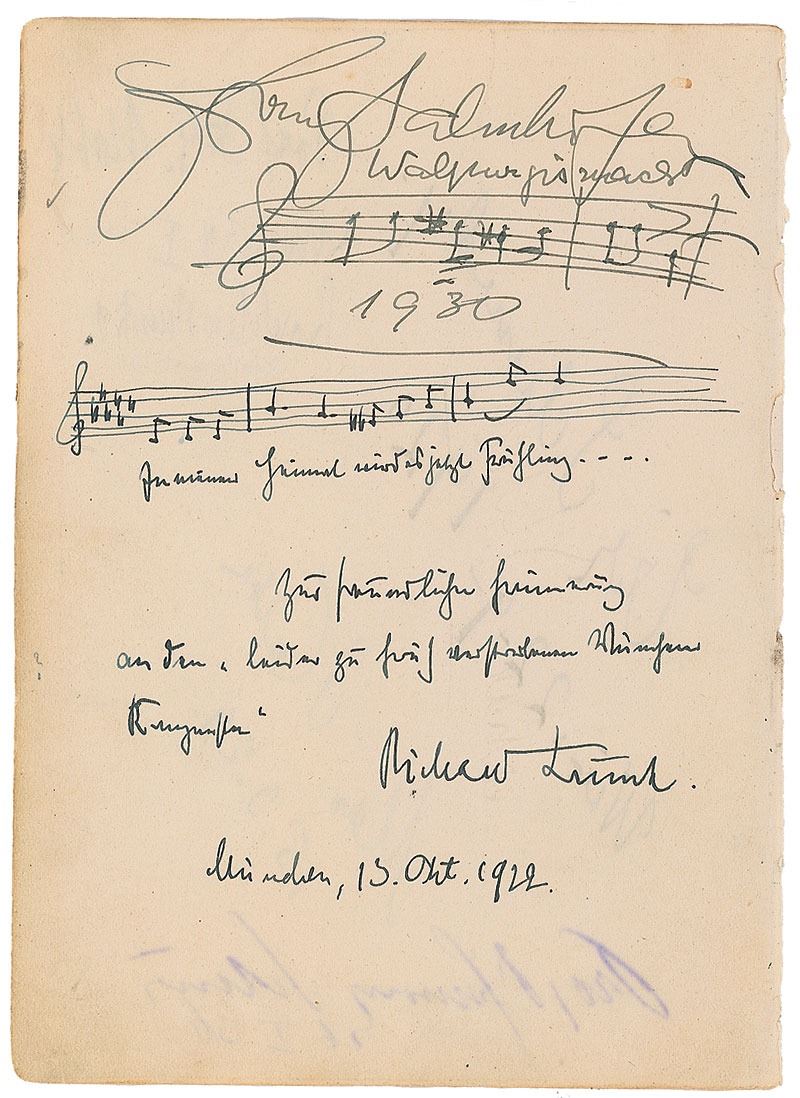 Franz Salmhofer
Walpurgisnacht
1930
In meiner Heimat wird es jetzt Frühling....
Zur freundlichen Erinnerung
an den „leider zu früh verstorbenen Münchener
Komponisten“
Richard Trunk.
München, 13. Okt. 1922.